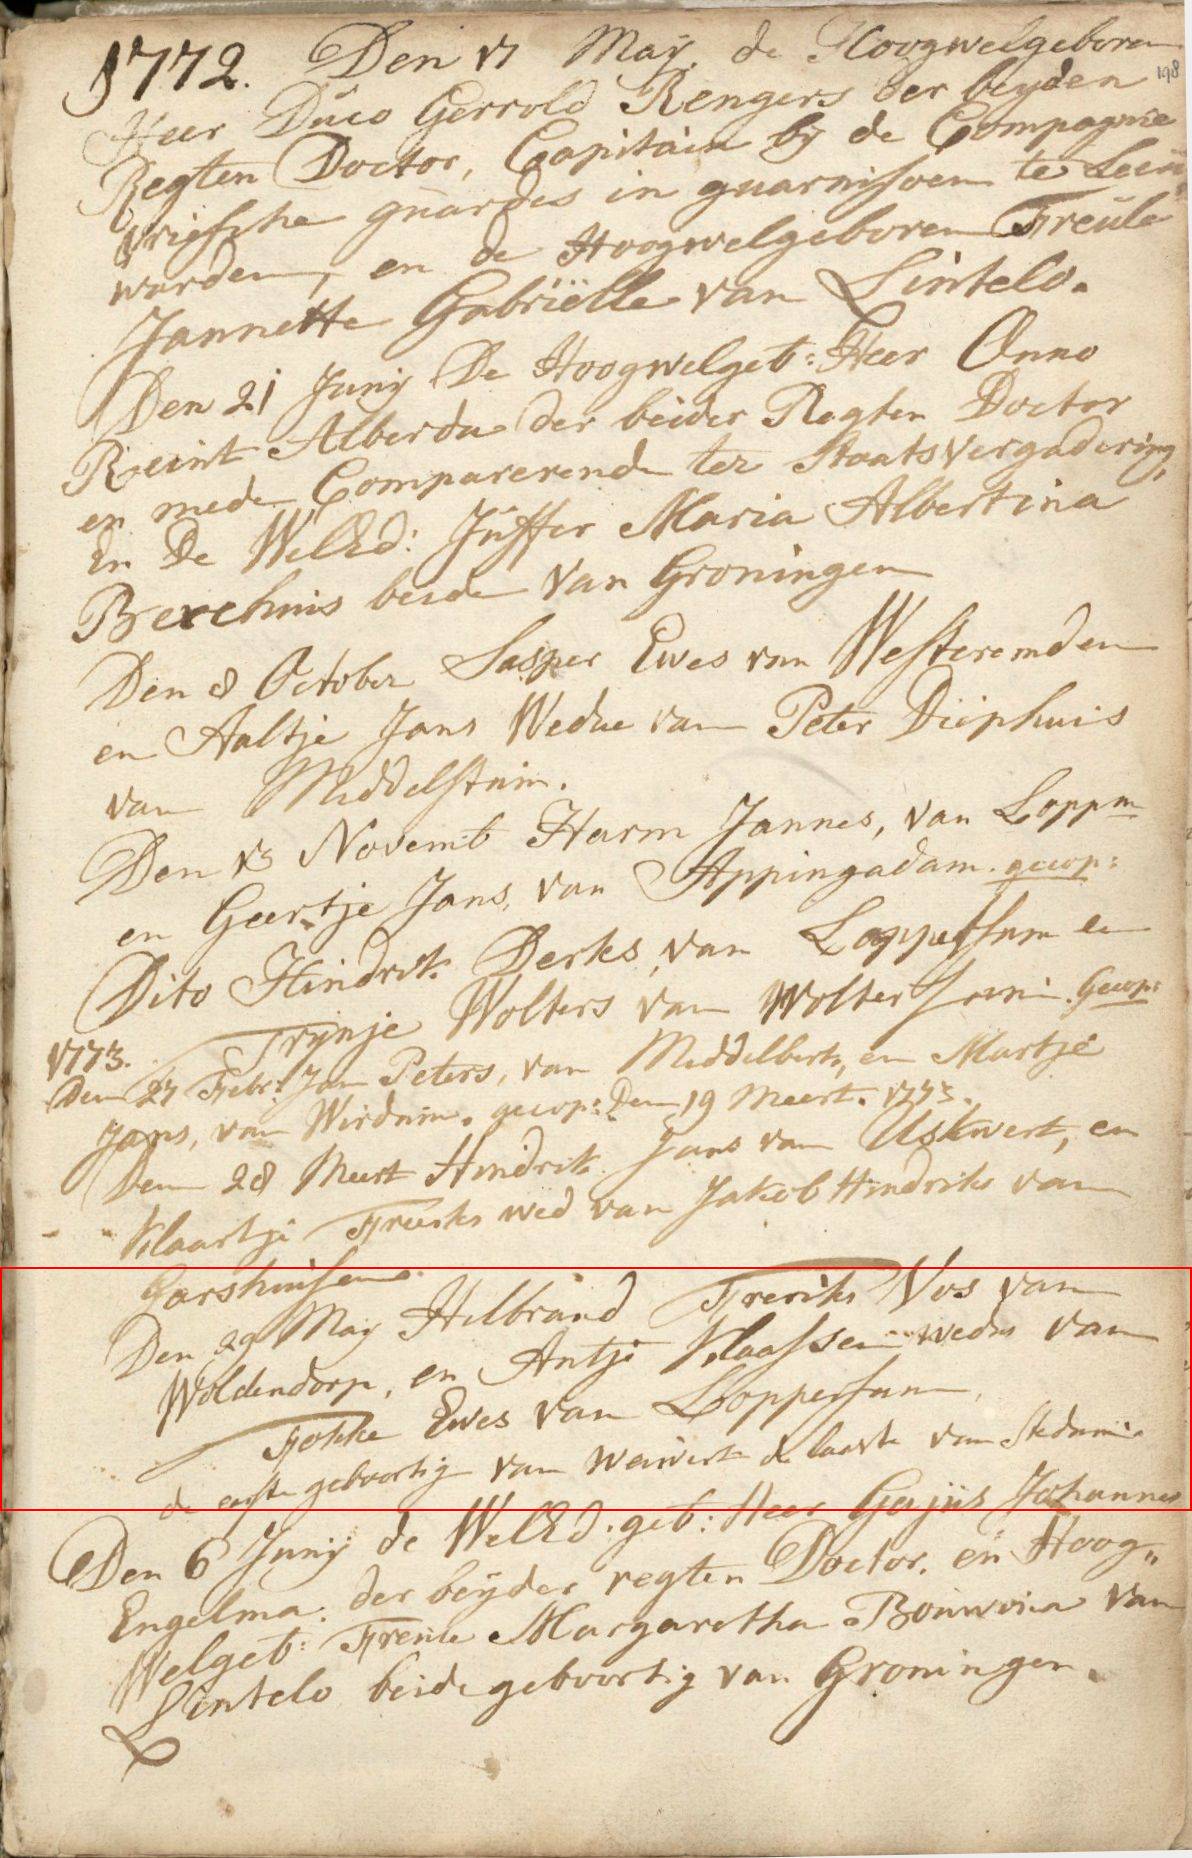 1772. Den 17 May. de Hoogwelgeboren
198
Heer Duco Gerrold Rengers der beyden
Regten Doctor, Capitain by de Compagnie
vriesche guardes in guarnisoen te Leeu„
warden, en de Hoogwelgeboren Freule
Jannette Gabriëlle van Lintelo.
Den 21 Junij De Hoogwelgeb: Heer Onno
Reint Alberda der beider Regten Doctor
en mede Comparerende ter Staatsvergadering,
En De WelEd: Juffer Maria Albertina
Berchuis beide van Groningen
Den 8 October Jasper Ewes van Westeremden
en Aaltje Jans Wedue van Peter Diephuis
van Middelstum.
Den 13 Novemb Harm Jannes, van Loppm
en Geertje Jans, van Appingadam. gecop:
Dito Hindrik Derks van Loppersum en
Trynje Wolters van Woltersum. Gecop:
1773.
Den 27 Febr: Jan Peters, van Middelbert, en Martje
Jans, van Wirdum. gecop: Den 19 Meert. 1773.
Den 28 Meert Hindrik Jans van Uskwert, en
Klaartje Freerks wed van Jakob Hindriks van
Garshuisen.
Den 29 May Hilbrand Freriks Vos van
Woldendorp, en Antje Klaassen wedu van
Fokke Ewes van Loppersum,
de eerste geboortig van Weiwert de laaste van Stedum.
Den 6 Junij de WelEd. geb: Heer Gajus Johannes
Engelma. der beyder regten Doctor. en Hoog„
Welgeb: Freule Margaretha Bouwina van
Lintelo beide geboortig van Groningen.